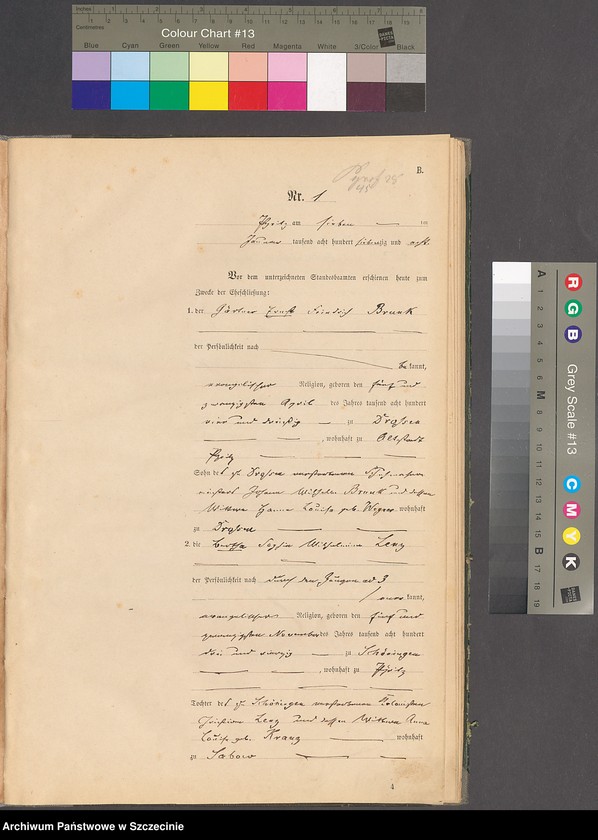 Inches
Centimetres
Colour Chart #13
Blue Cyan Green Yellow Red Magenta White 3/Color Black
B.
Nr. 1
Pyritz am sieben — ten
Januar tausend acht hundert siebenzig und acht
Vor dem unterzeichneten Standesbeamten erschienen heute zum
Zwecke der Eheschließung:
1. der Gärtner Ernst Friedrich Brunk
der Persönlichkeit nach
be kannt,
evangelischer Religion, geboren den fünf und
zwanzigsten April des Jahres tausend acht hundert
vier und dreißig — zu
, wohnhaft zu Altstadt
Pyritz
Sohn des zu verstorbenen
Johann Wilhelm Brunk und dessen
Wittwe Hanne Louise geb. wohnhaft
zu
2. die Bertha Sophie Wilhelmine Lenz
der Persönlichkeit nach durch den Zeugen ad 3
aner kannt,
evangelischer Religion, geboren den fünf und
zwanzigsten November des Jahres tausend acht hundert
drei und vierzig — zu Schöningen
, wohnhaft zu Pyritz
Tochter des zu Schöningen verstorbenen
Christian Lenz und dessen Wittwe Anna
Louise geb. Kranz wohnhaft
zu Sabow
4
Grey Scale #13
R G B C M Y K
A 1 2 3 4 5 6 M 8 9 10 11 12 13 14 15 B 17 18 19
Archiwum Państwowe w Szczecinie